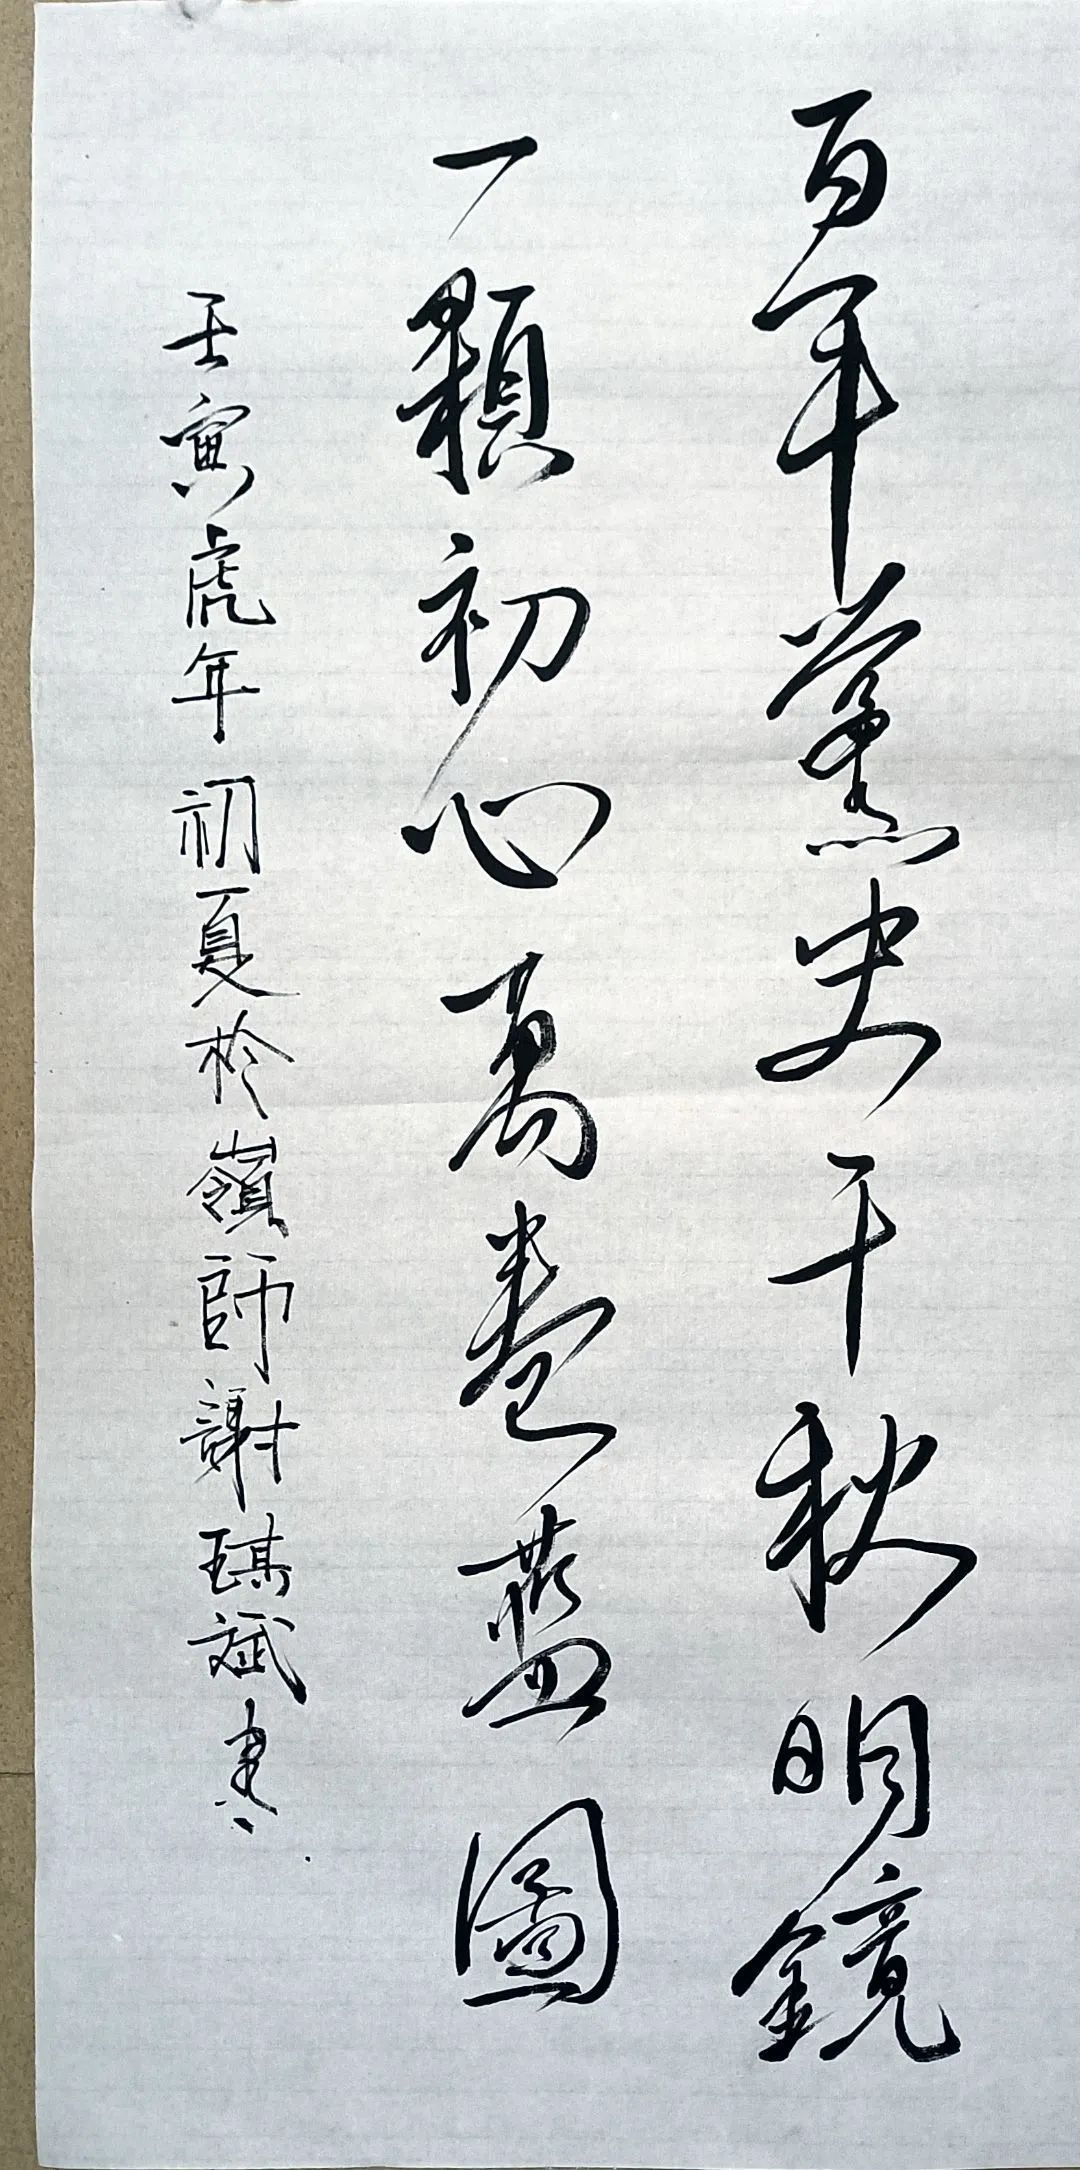 百年黨史千秋明鏡
一顆初心萬卷藍圖
壬寅虎年初夏於嶺師謝琪斌書